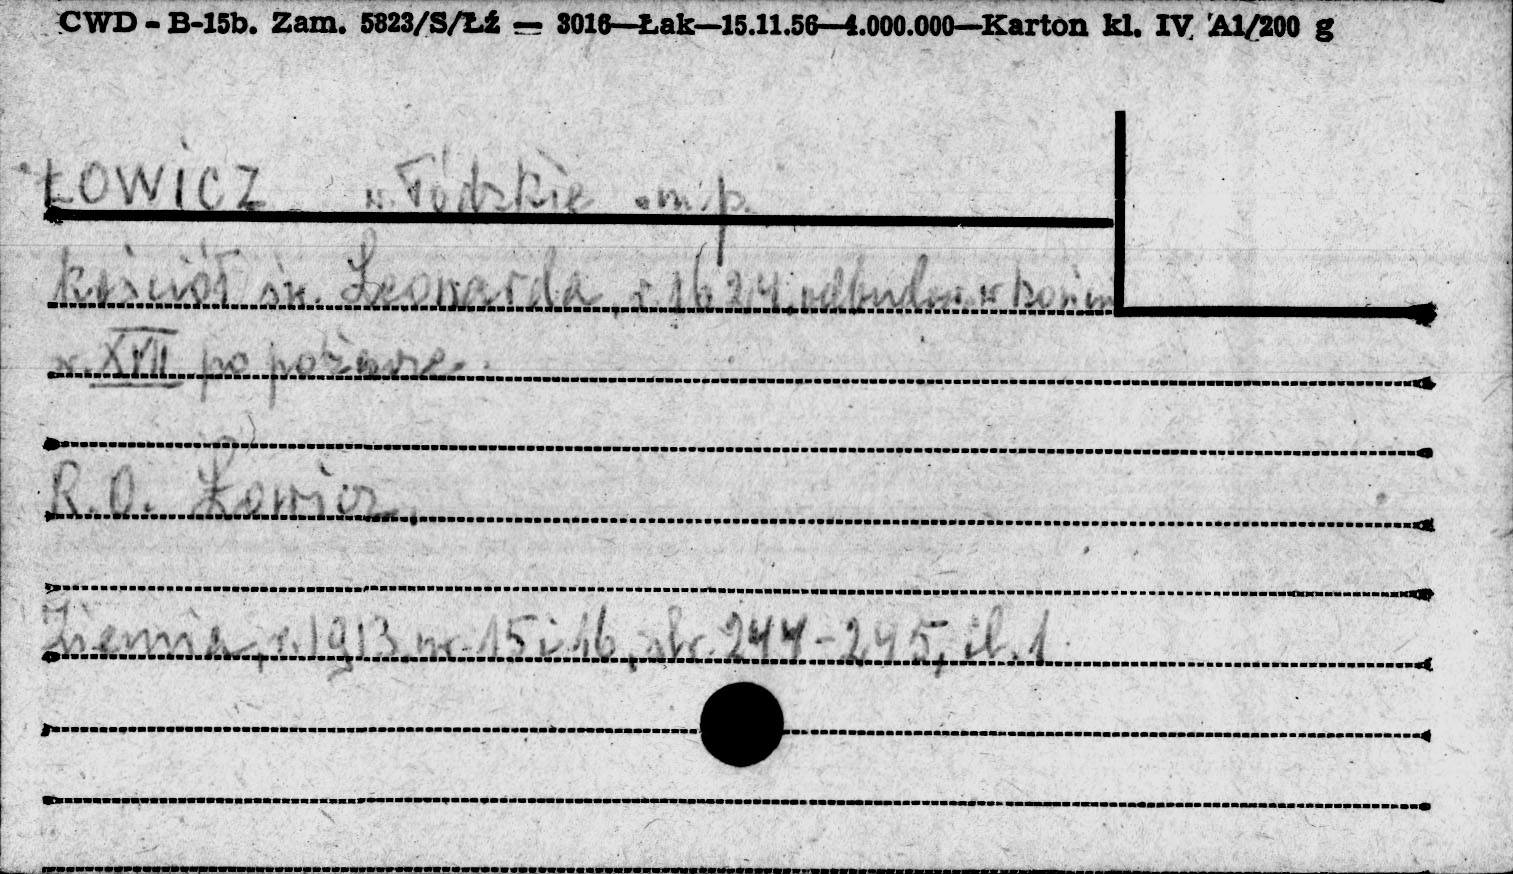 CWD - B-15b. Zam. 5823/S/Łź — 3016—Łak—15.11.56—4.000.000—Karton kl. IV A1/200 g
ŁOWICZ w. Łódzkie m.p.
kościół św. Leonarda, r. 1624, odbudow. w końcu
w. XVII po pożarze.
R.O. Łowicz.
Ziemia, r. 1913, nr. 15 i 16, str. 244-245, il. 1